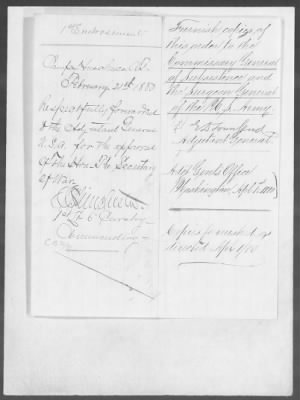 1st Endorsement
Camp Huachuca A.T.
February 21st 1880
Respectfully forwarded
to the Adjutant General
U.S.A. for the approval
of The Hon. The Secretary
of War.
1st Lt 6" Cavalry
Commanding
Furnish copies of
this order to the
Commissary General
of Subsistence and
the Surgeon General
of the U.S. Army
E D Townsend
Adjutant General
Adjt Genl's Office
Washington, Apl 1, 1880
Copies furnished as
directed Apl 1/80